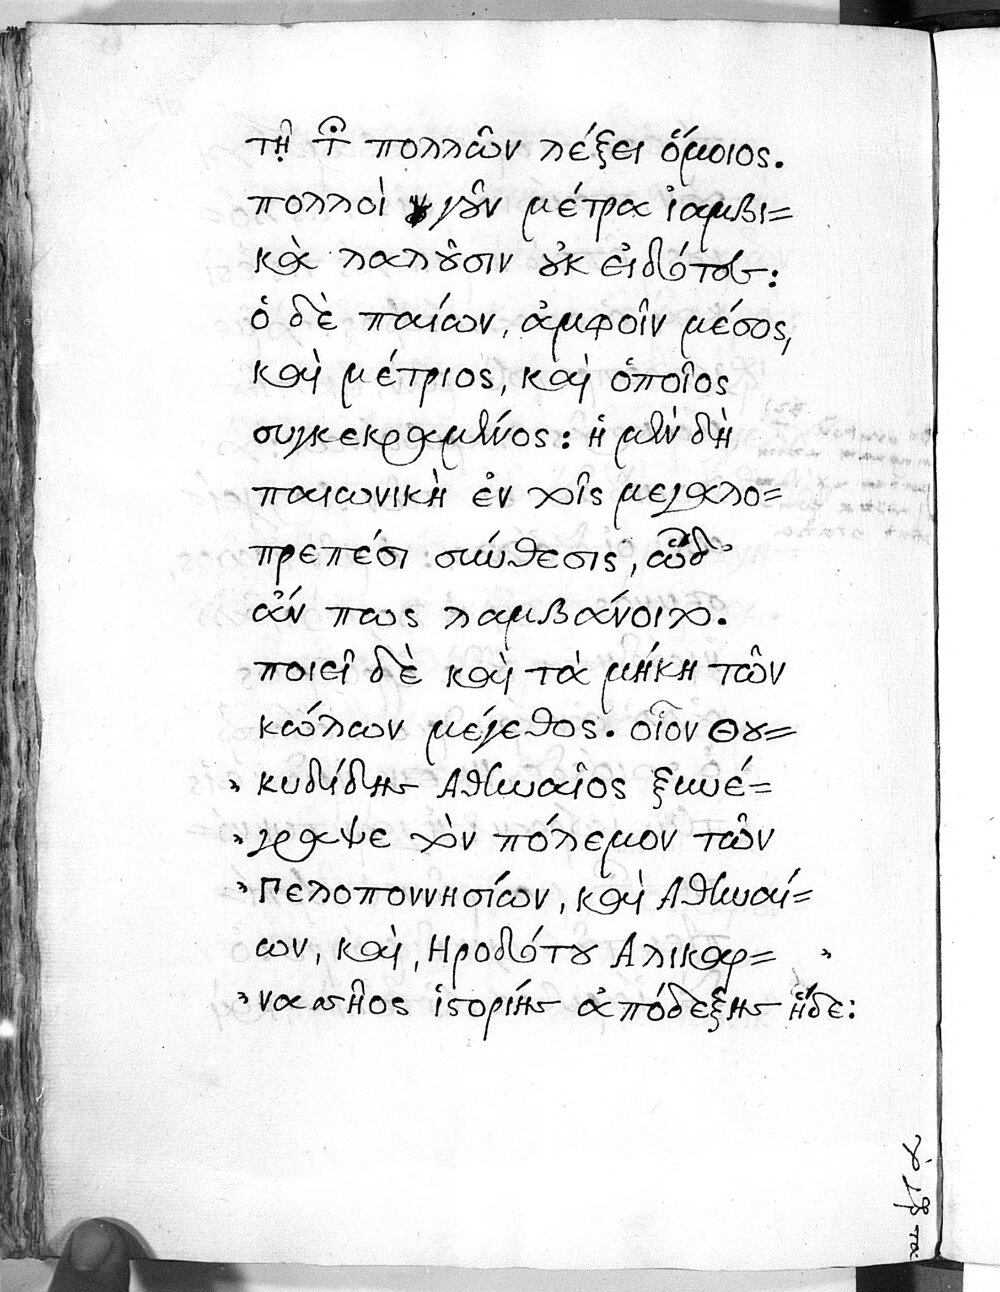 τῇ τῶν πολλῶν λέξει ὅμοιος.
πολλοὶ γοῦν μέτρα ἰαμβι=
κὰ λαλοῦσιν οὐκ εἰδότες:
ὁ δὲ παίων, ἀμφοῖν μέσος,
καὶ μέτριος, καὶ ὁποῖος
συγκεκραμένος: ἡ μὲν δὴ
παιωνικὴ ἐν τοῖς μεγαλο=
πρεπέσι σύνθεσις, ὧδ'
ἄν πως λαμβάνοιτο.
ποιεῖ δὲ καὶ τὰ μήκη τῶν
κώλων μέγεθος. οἷον Θου=
» κυδίδης Ἀθηναῖος ξυνέ=
» γραψε τὸν πόλεμον τῶν
» Πελοποννησίων, καὶ Ἀθηναί=
ων, καὶ, Ἡροδότου Ἁλικαρ= »
» νασῆος ἱστορίης ἀπόδεξης ἥδε: